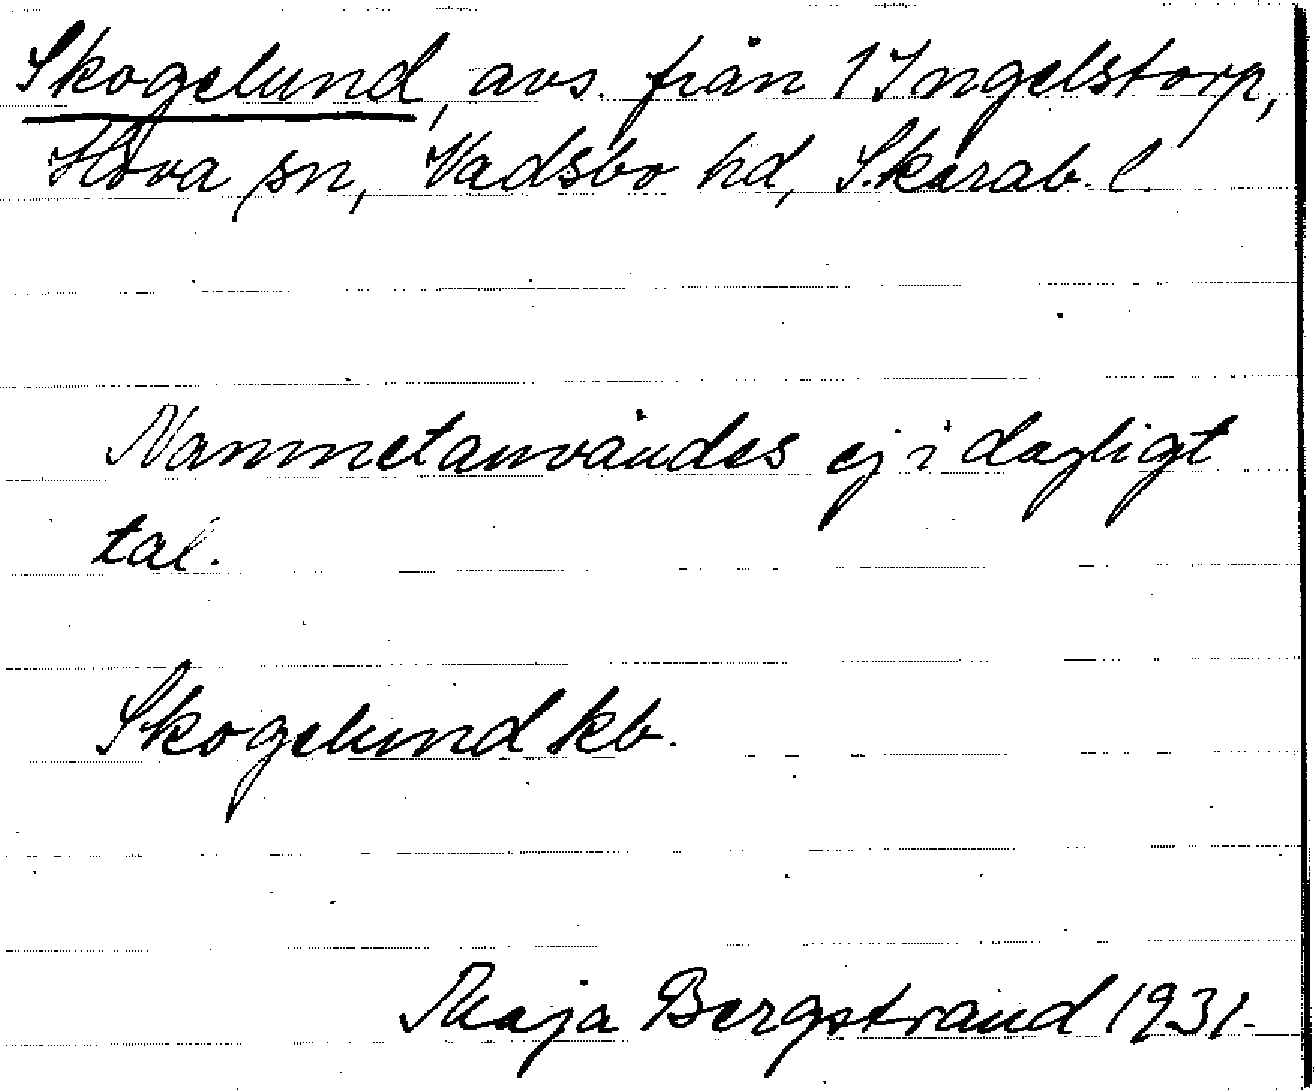 Skogelund, avs. från 1 Ingelstorp,
Hova sn, Vadsbo hd, Skarab. l.
Namnet användes ej i dagligt
tal.
Skogelund kb.
Maja Bergstrand 1931.